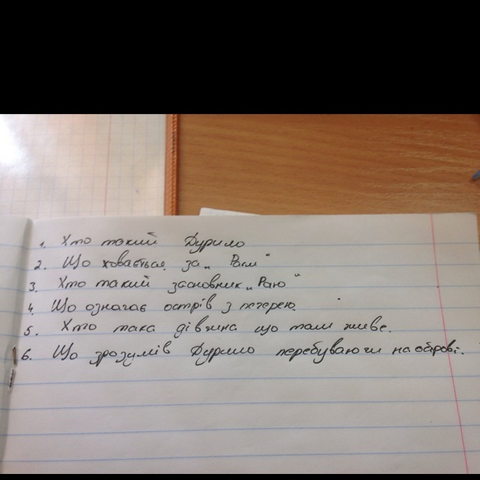 1. Хто такий Дурило
2. Що ховається за „Раєм"
3. Хто такий засновник „Раю"
4. Що означає острів з печерою.
5. Хто така дівчина що там живе.
6. Що зрозумів Дурило перебуваючи на острові.